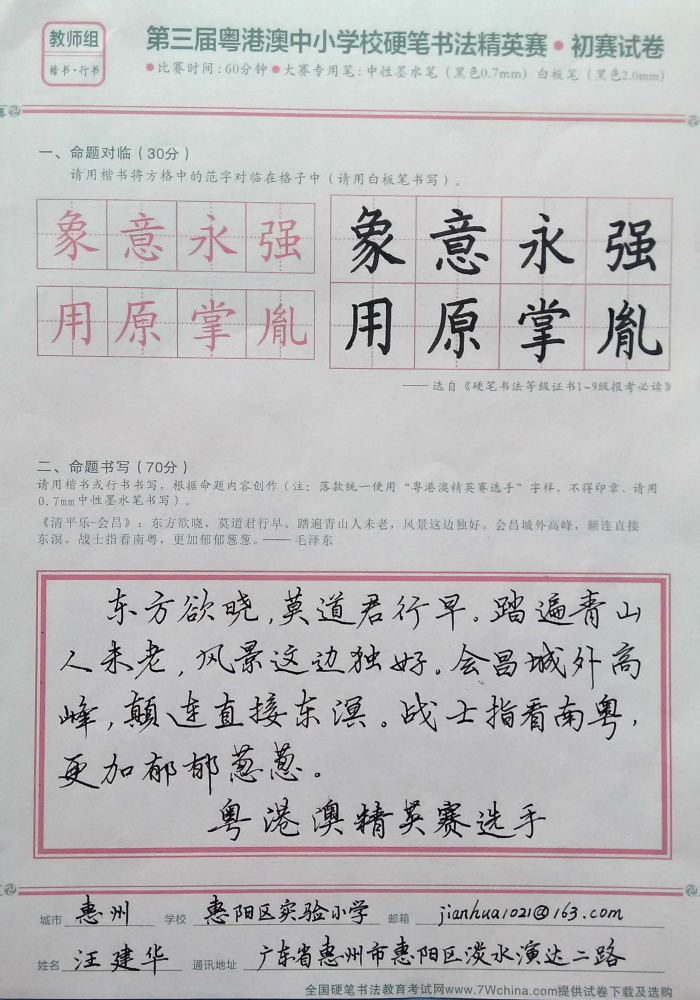 教师组
楷书·行书
第三届粤港澳中小学校硬笔书法精英赛·初赛试卷
●比赛时间:60分钟●大赛专用笔:中性墨水笔(黑色0.7mm) 白板笔(黑色2.0mm)
一、命题对临(30分)
请用楷书将方格中的范字对临在格子中(请用白板笔书写)。
象意永强
用原掌胤
象意永强
用原掌胤
——选自《硬笔书法等级证书1~9级报考必读》
二、命题书写(70分)
请用楷书或行书书写,根据命题内容创作(注:落款统一使用“粤港澳精英赛选手”字样,不得印章。请用
0.7mm中性墨水笔书写)。
《清平乐-会昌》:东方欲晓,莫道君行早。踏遍青山人未老,风景这边独好。会昌城外高峰,颠连直接
东溟。战士指看南粤,更加郁郁葱葱。——毛泽东
东方欲晓,莫道君行早。踏遍青山
人未老,风景这边独好。会昌城外高
峰,颠连直接东溟。战士指看南粤,
更加郁郁葱葱。
粤港澳精英赛选手
城市 惠州 学校 惠阳区实验小学 邮箱 jianhua1021@163.com
姓名 汪建华 通讯地址 广东省惠州市惠阳区淡水演达二路
全国硬笔书法教育考试网www.7Wchina.com提供试卷下载及选购